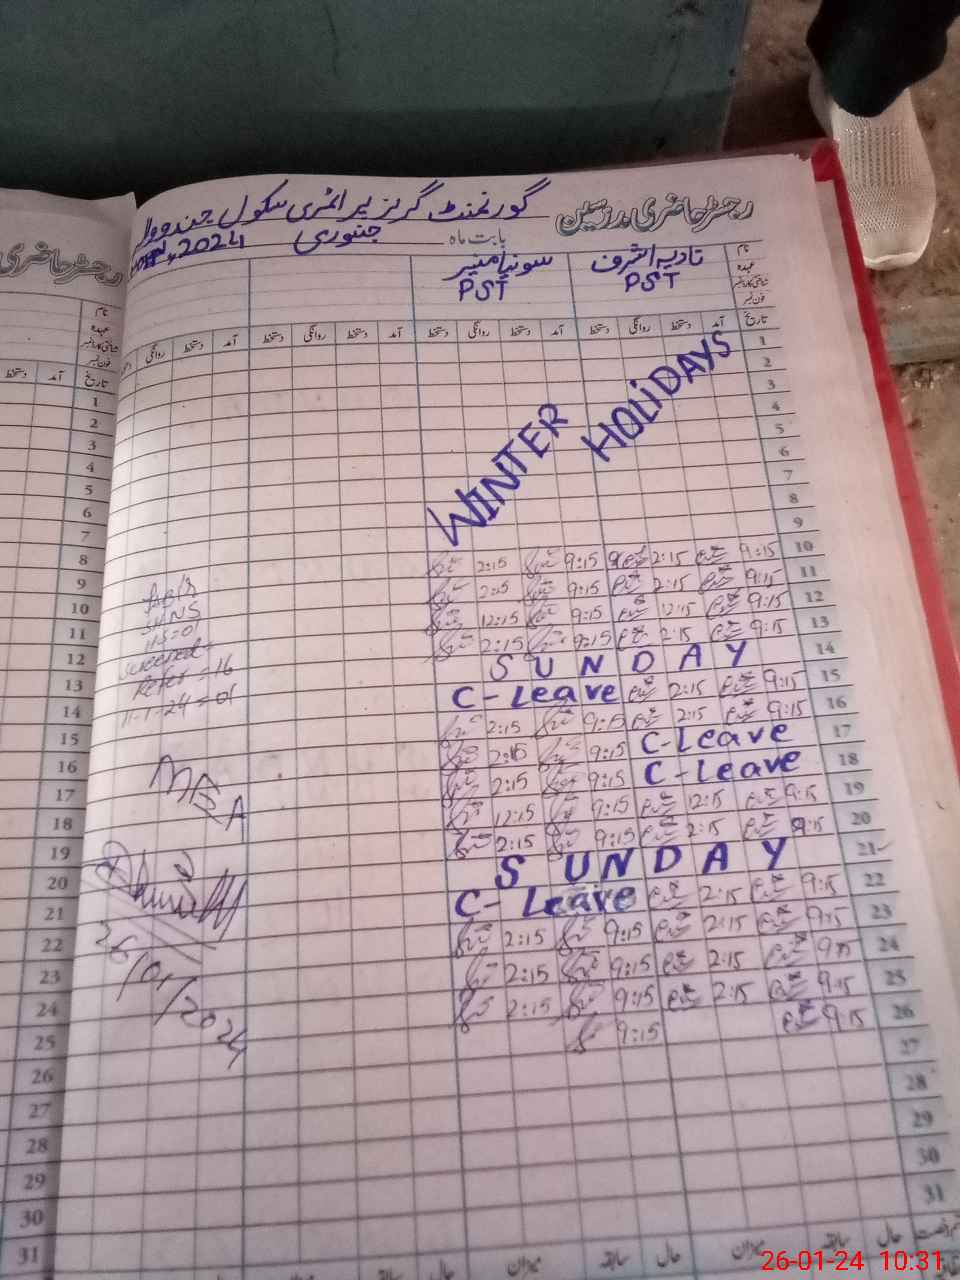 رجسٹر حاضری مدرسین گورنمنٹ گرلز پرائمری سکول
بابت ماہ جنوری 2024
نام نادیہ اشرف سونیا منیر
عہدہ PST PST
شناختی کارڈ نمبر
فون نمبر
تاریخ آمد دستخط روانگی دستخط آمد دستخط روانگی دستخط آمد دستخط روانگی دستخط آمد دستخط روانگی
1
2
3
4
5
6
7
8
9
WINTER HOLIDAYS
10 9:15 2:15 9:15 2:15
11 9:15 2:15 9:15 2:15
12 9:15 12:15 9:15 12:15
13 9:15 2:15 9:15 2:15
14 SUNDAY
15 9:15 2:15 C-Leave
16 9:15 2:15 9:15 2:15
17 C-Leave 9:15 2:15
18 C-Leave 9:15 2:15
19 9:15 12:15 9:15 12:15
20 9:15 2:15 9:15 2:15
21 SUNDAY
22 9:15 2:15 C-Leave
23 9:15 2:15 9:15 2:15
24 9:15 2:15 9:15 2:15
25 9:15 2:15 9:15 2:15
26 9:15 9:15
27
28
29
30
31
میزان سابقہ حال میزان سابقہ حال
= 16
11-1-24 = 01
MEA
26/01/2024
رجسٹر حاضری
نام
عہدہ
شناختی کارڈ نمبر
فون نمبر
تاریخ آمد دستخط
1
2
3
4
5
6
7
8
9
10
11
12
13
14
15
16
17
18
19
20
21
22
23
24
25
26
27
28
29
30
31
26-01-24 10:31